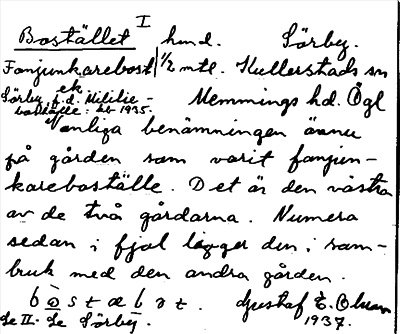 I
Bostället hmd. Sörby.
Fanjunkarebost 1/2 mtl. Kullerstads sn
ek
Sörby f.d. Militie-
boställe: kb 1935. Memmings hd. Ögl
Vanliga benämningen ännu
på gården som varit fanjun-
kareboställe. Det är den västra
av de två gårdarna. Numera
sedan i fjol lägges den i sam-
bruk med den andra gården.
Gustaf E.
Se II. Se Sörby. 1937.